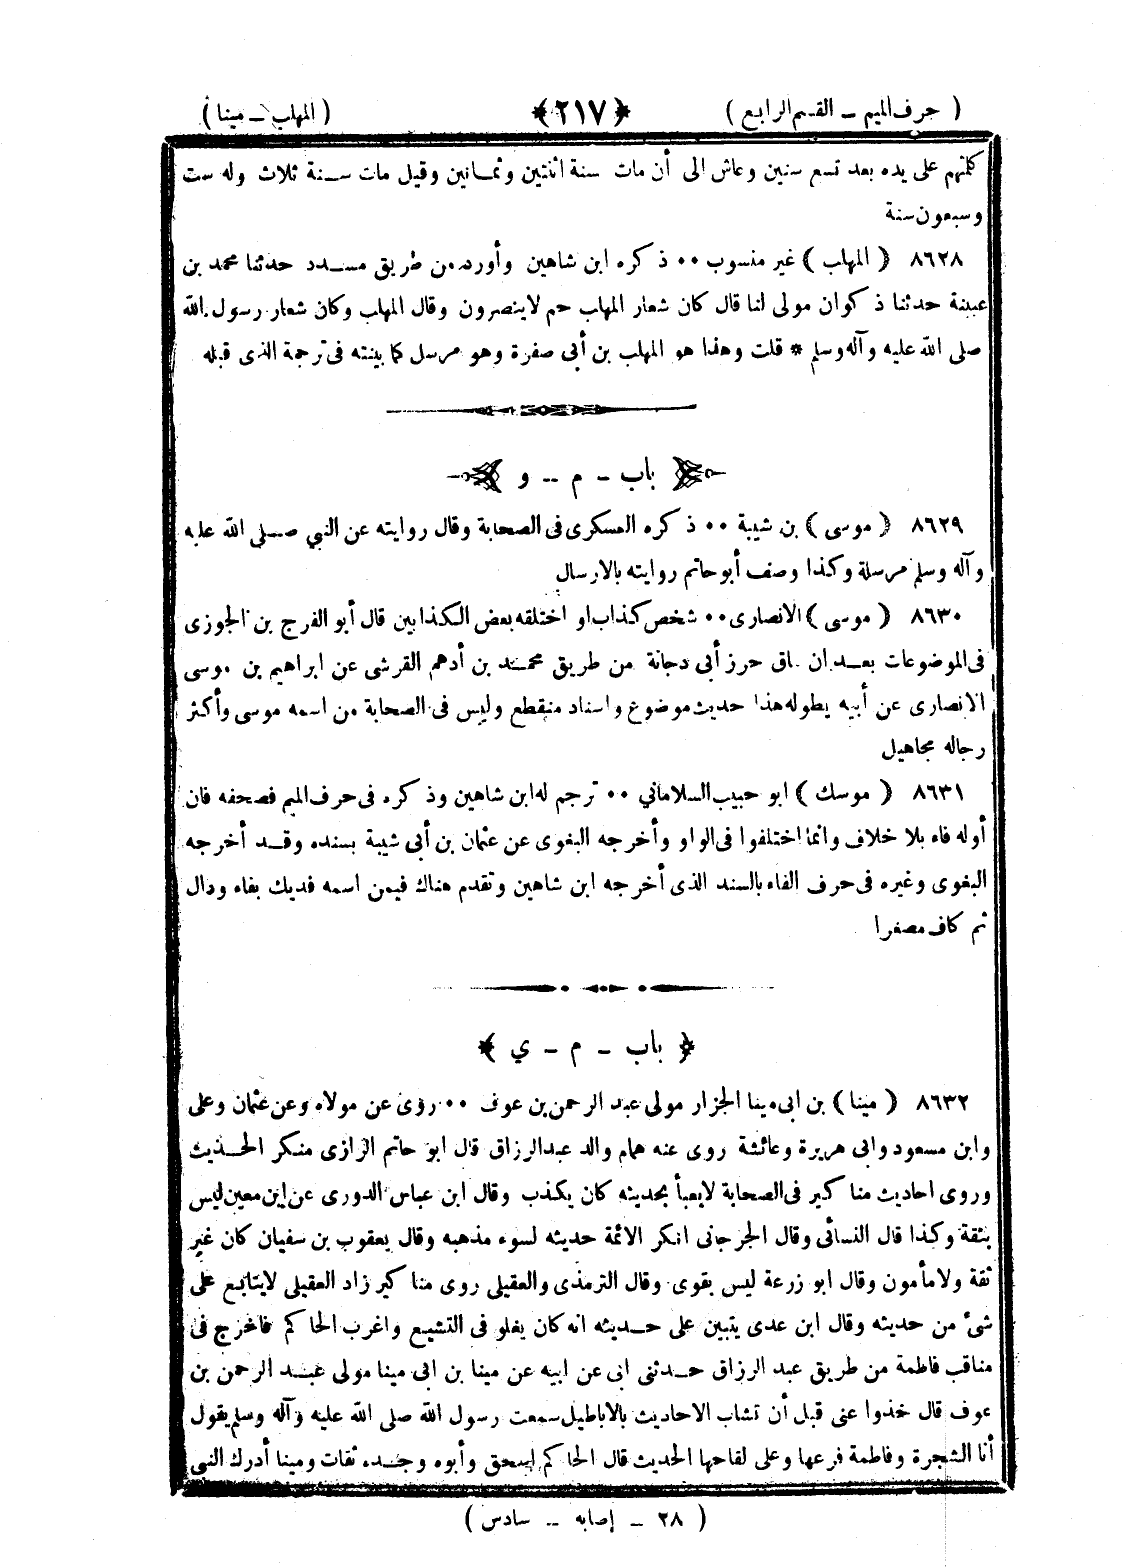 ( حرف الميم ـ القسم الرابع ) ﴿٢١٧﴾ ( المهلب ـ مينا )
كلتهم على يده بعد تسع سنين وعاش الى أن مات سنة اثنتين وثمانين وقيل مات سنة ثلاث وله ست
وسبعون سنة
٨٦٢٨ ( المهلب ) غير منسوب ٠٠ ذكره ابن شاهين وأورد من طريق مسدد حدثنا محمد بن
عيينة حدثنا ذكوان مولى لنا قال كان شعار المهلب حم لاينصرون وقال المهلب وكان شعار رسول الله
صلى الله عليه وآله وسلم * قلت وهذا هو المهلب بن أبي صفرة وهو مرسل كما بينته فى ترجمة الذى قبله
باب ـ م ـ و
٨٦٢٩ ( موسى ) بن شيبة ٠٠ ذكره العسكرى فى الصحابة وقال روايته عن النبي صلى الله عليه
وآله وسلم مرسلة وكذا وصف أبو حاتم روايته بالارسال
٨٦٣٠ ( موسى ) الانصارى ٠٠ شخص كذاب او اختلقه بعض الكذابين قال أبو الفرج بن الجوزى
فى الموضوعات بعد ان ساق حرز أبي دجانة من طريق محمد بن أدهم القرشى عن ابراهيم بن موسى
الانصارى عن أبيه بطوله هذا حديث موضوع واسناد منقطع وليس فى الصحابة من اسمه موسى وأكثر
رجاله مجاهيل
٨٦٣١ ( موسك ) ابو حبيب السلاماني ٠٠ ترجم له ابن شاهين وذكره فى حرف الميم فصحفه فان
أوله فاء بلا خلاف وانما اختلفوا فى الواو وأخرجه البغوى عن عثمان بن أبي شيبة بسنده وقد أخرجه
البغوى وغيره فى حرف الفاء بالسند الذى أخرجه ابن شاهين وتقدم هناك فيمن اسمه فديك بفاء ودال
ثم كاف مصغرا
﴿ باب ـ م ـ ي ﴾
٨٦٣٢ ( مينا ) بن ابى مينا الجزار مولى عبد الرحمن بن عوف ٠٠ روى عن مولاه وعن عثمان وعلى
وابن مسعود وابى هريرة وعائشة روى عنه همام والد عبدالرزاق قال ابو حاتم الرازى منكر الحديث
وروى احاديث مناكير فى الصحابة لايعبأ بحديثه كان يكذب وقال ابن عباس الدورى عن ابن معين ليس
بثقة وكذا قال النسائى وقال الجرجانى انكر الائمة حديثه لسوء مذهبه وقال يعقوب بن سفيان كان غير
ثقة ولا مأمون وقال ابو زرعة ليس بقوى وقال الترمذى والعقيلى روى مناكير زاد العقيلى لايتابع على
شئ من حديثه وقال ابن عدى يتبين على حديثه انه كان يغلو فى التشيع واغرب الحاكم فاخرج فى
مناقب فاطمة من طريق عبد الرزاق حدثنى ابى عن ابيه عن مينا بن ابى مينا مولى عبد الرحمن بن
عوف قال خذوا عنى قبل أن تشاب الاحاديث بالاباطيل سمعت رسول الله صلى الله عليه وآله وسلم يقول
أنا الشجرة وفاطمة فرعها وعلى لقاحها الحديث قال الحاكم إسحق وأبوه وجده ثقات ومينا أدرك النبى
( ٢٨ ـ إصابه ـ سادس )